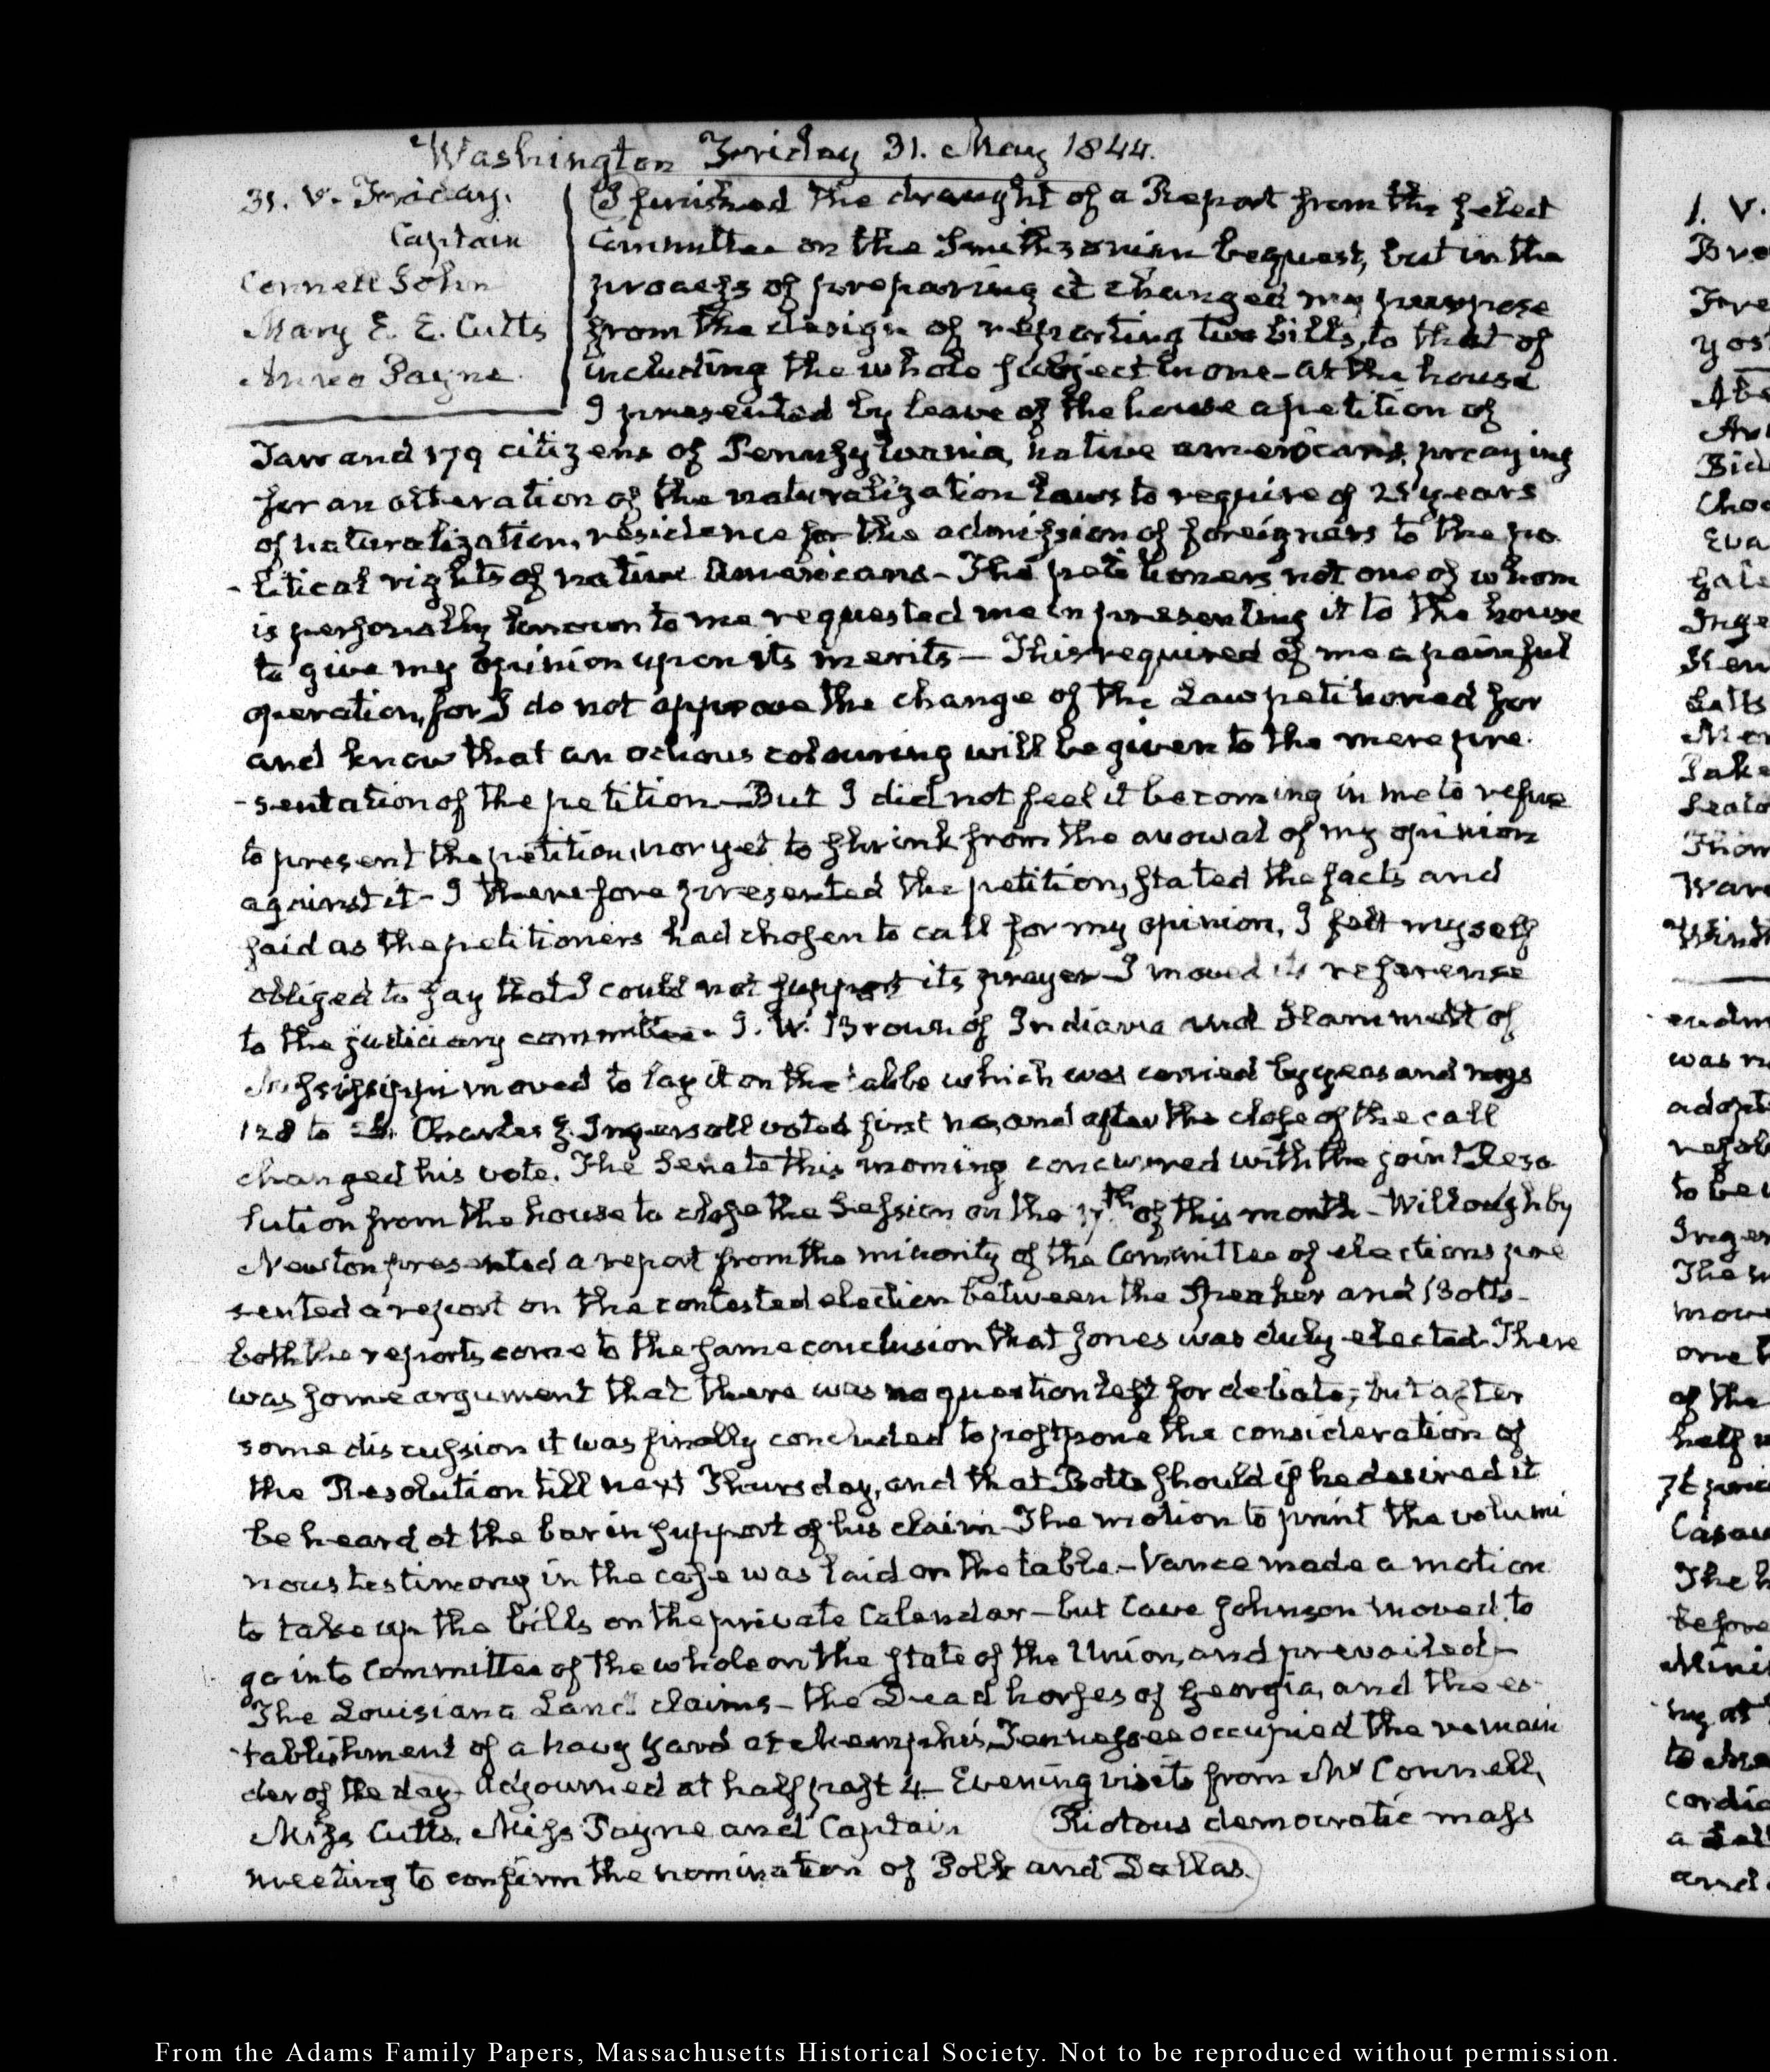 Washington Friday 31. May 1844.
31. V. Friday.
Captain
Connell John
Mary E. E. Cutts
Annea Payne
I finished the draught of a Report from the select
Committee on the Smithsonian bequest, but in the
process of preparing it changed my purpose
from the design of reporting two bills, to that of
including the whole subject in one - at the house
I presented by leave of the house a petition of
and 179 citizens of Pennsylvania, native americans, praying
for an alteration of the naturalization Laws to require of 25 years
of naturalization, residence for the admission of foreigners to the po
-litical rights of native Americans - The petitioners not one of whom
is personally known to me requested me in presenting it to the house
to give my opinion upon its merits - This required of me a painful
operation, for I do not approve the change of the Law petitioned for
and know that an odious colouring will be given to the mere pre
-sentation of the petition - But I did not feel it becoming in me to refuse
to present the petition, nor yet to shrink from the avowal of my opinion
against it - I therefore presented the petition, stated the facts and
said as the petitioners had chosen to call for my opinion, I felt myself
obliged to say that I could not support its prayer - I moved its reference
to the judiciary committee. J. W. Brown of Indiana and Hammett of
Mississippi moved to lay it on the table which was carried by yeas and nays
128 to Charles J. Ingersoll voted first no, and after the close of the call
changed his vote. The Senate this morning concurred with the joint Reso
lution from the house to close the Session on the 17th. of this month - Willoughby
Newton presented a report from the minority of the Committee of elections pre
sented a report on the contested election between the Speaker and Botts -
both the reports come to the same conclusion that Jones was duly elected. There
was some argument that there was no question left for debate; but after
some discussion it was finally concluded to postpone the consideration of
the Resolution till next Thursday, and that Botts should if he desired it
be heard at the bar in support of his claim - The motion to print the volumi
nous testimony in the case was laid on the table. - Vance made a motion
to take up the bills on the private Calendar - but Cave Johnson moved to
go into Committee of the whole on the state of the Union, and prevailed -
The Louisiana Land claims - the Dead horses of Georgia, and the es
-tablishment of a navy yard at Memphis, Tennessee occupied the remain
der of the day - Adjourned at half past 4 - Evening visits from Mr Connell,
Miss Cutts, Miss Payne and Captain Riotous democratic mass
meeting to confirm the nomination of Polk and Dallas.
1. V.
From the Adams Family Papers, Massachusetts Historical Society. Not to be reproduced without permission.